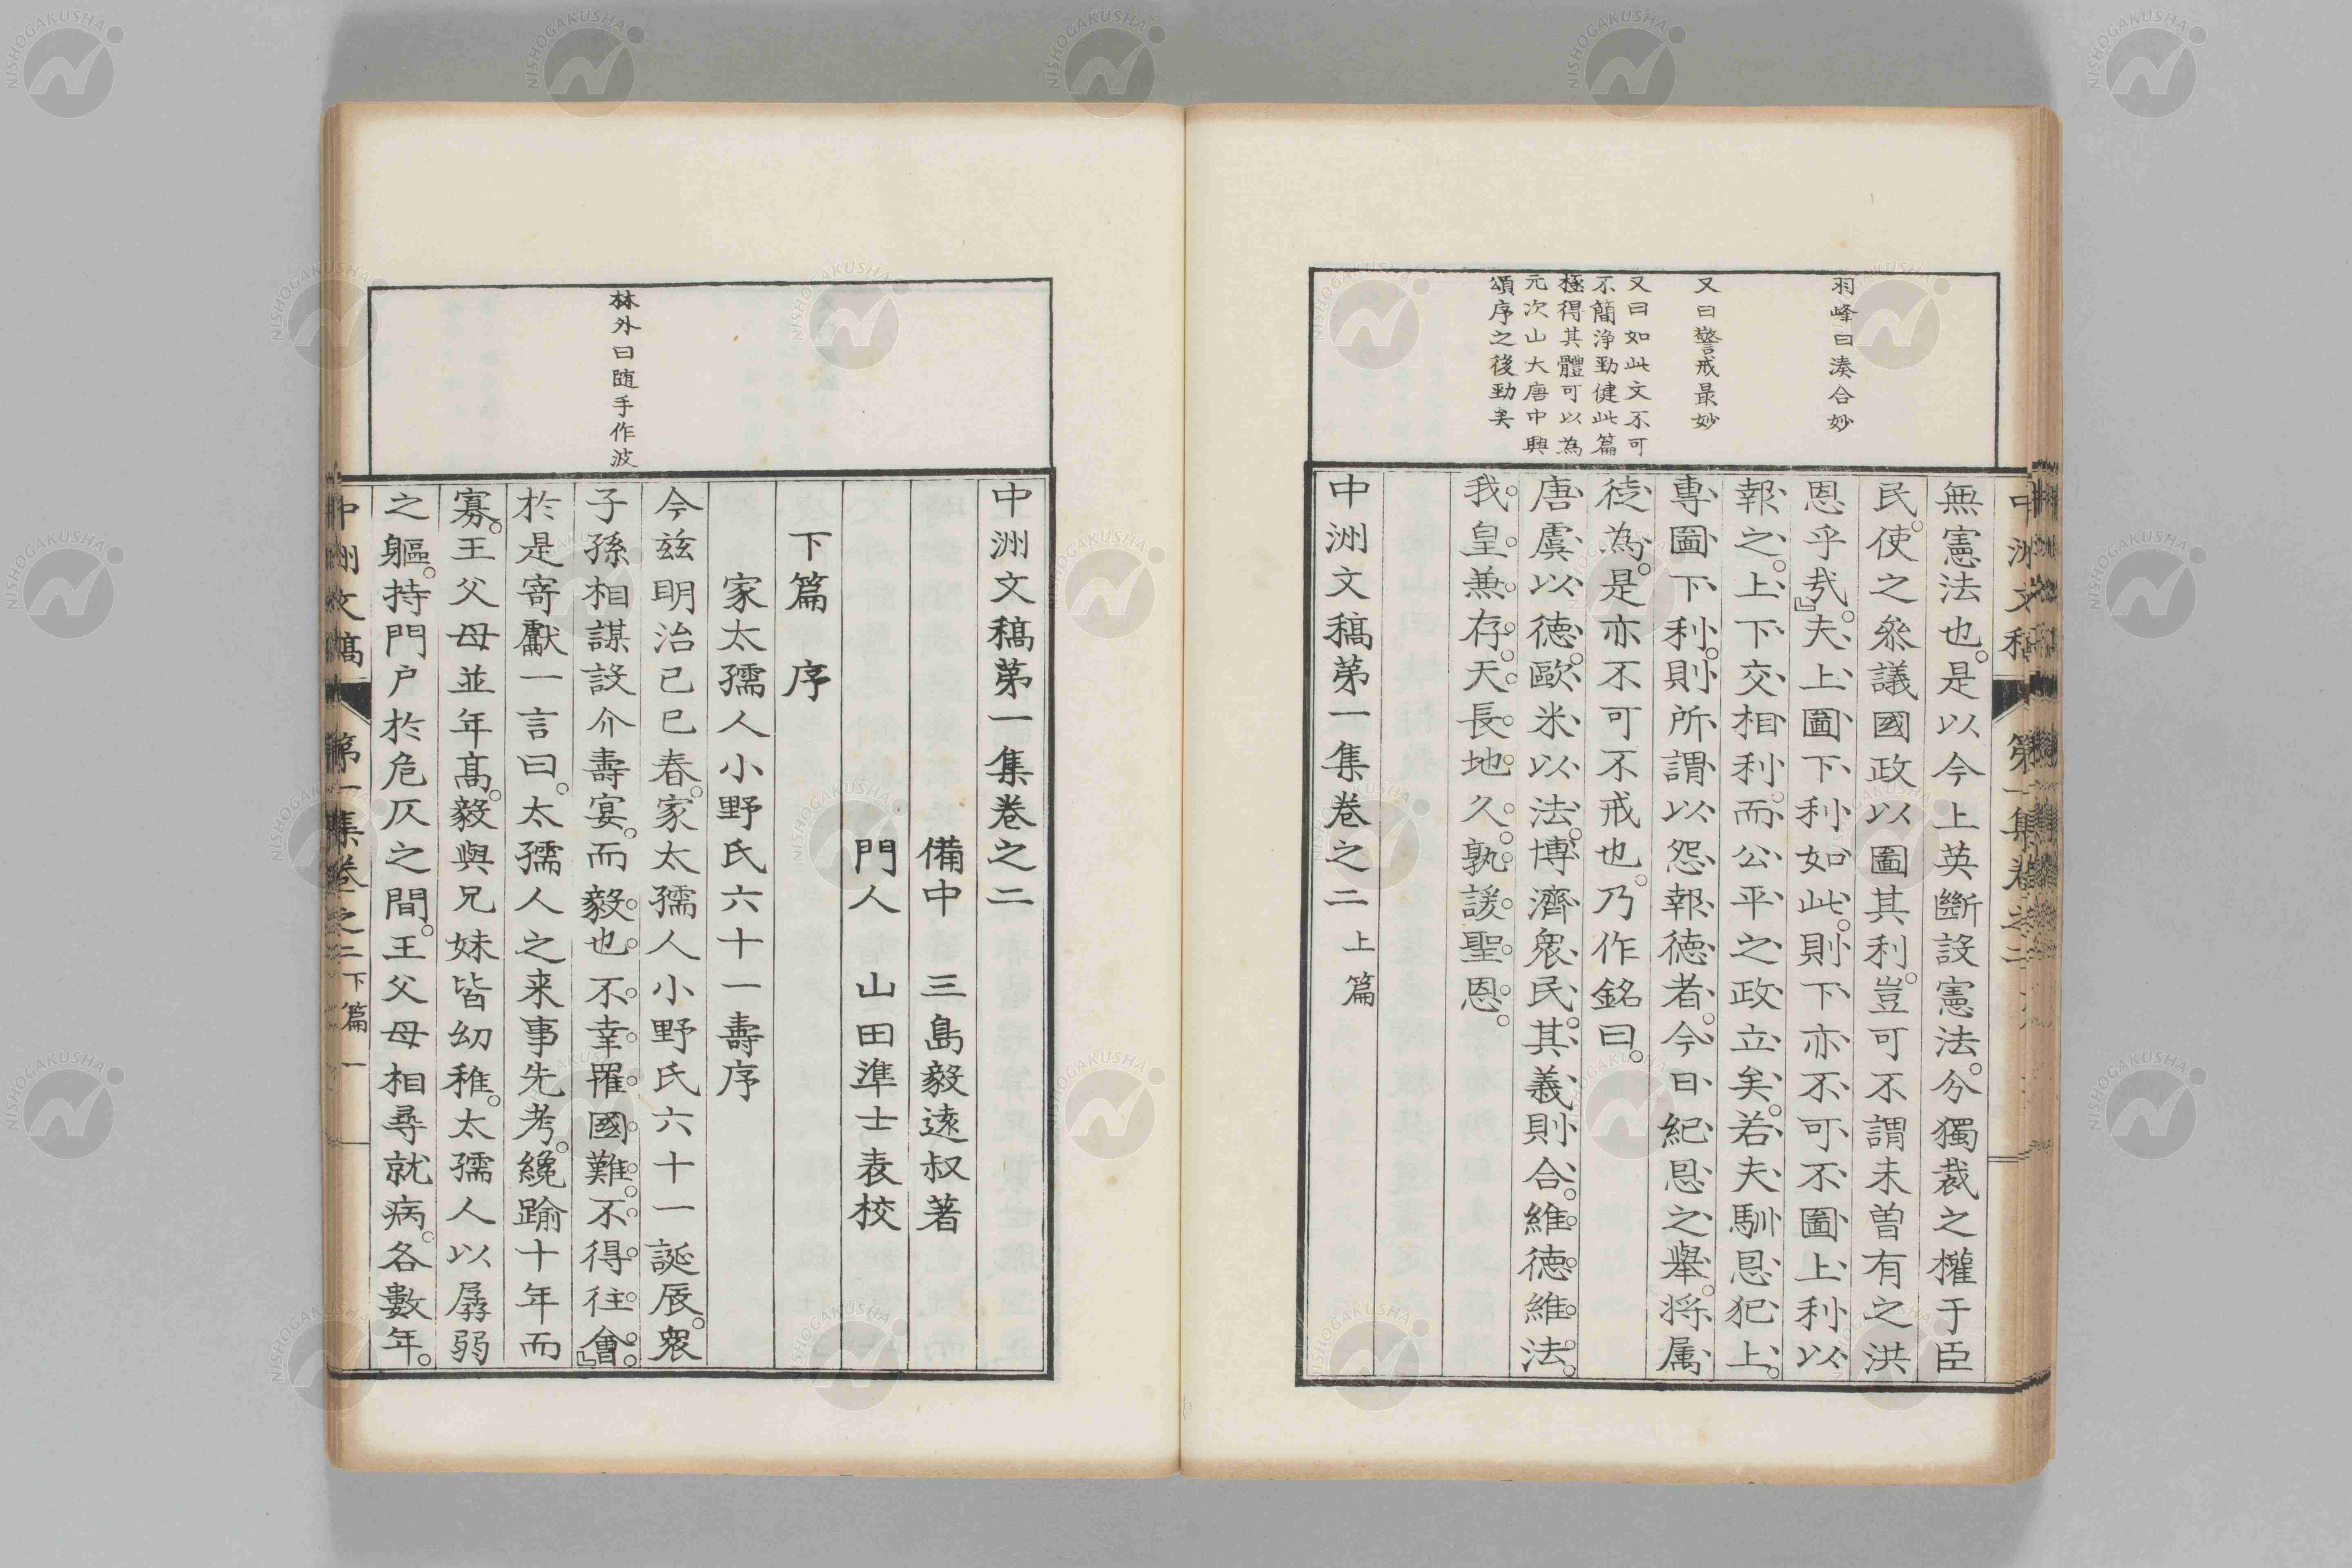 羽峰曰湊合妙
又曰警戒最妙
又曰如此文不可
不簡浄勁健此篇
極得其體可以為
元次山大唐中興
頌序之後勁矣
無憲法也。是以今上英斷設憲法。分獨裁之權于臣
民。使之叅議國政以圖其利。豈可不謂未曽有之洪
恩乎㢤。』夫上圖下利如此。則下亦不可不圖上利以
報之。上下交相利。而公平之政立矣。若夫馴恩犯上。
專圖下利。則所謂以怨報徳者。今日紀恩之舉。将属
徒為。是亦不可不戒也。乃作銘曰。
唐虞以徳。歐米以法。博濟衆民。其義則合。維徳維法。
我皇兼存。天長地久。孰諼聖恩。
中洲文稿第一集卷之二 上篇
林外曰随手作波
中洲文稿第一集卷之二
備中 三島毅遠叔著
門人 山田準士表校
下篇 序
家太孺人小野氏六十一壽序
今玆明治己巳春。家太孺人小野氏六十一誕辰。衆
子孫相謀設介壽宴。而毅也不幸罹國難。不得往會。』
於是寄獻一言曰。太孺人之来事先考。纔踰十年而
寡。王父母並年髙。毅與兄妹皆幼稚。太孺人以孱弱
之軀。持門户於危仄之間。王父母相尋就病。各數年。
中洲文稿 第一集卷之二下篇 一
NISHOGAKUSHA